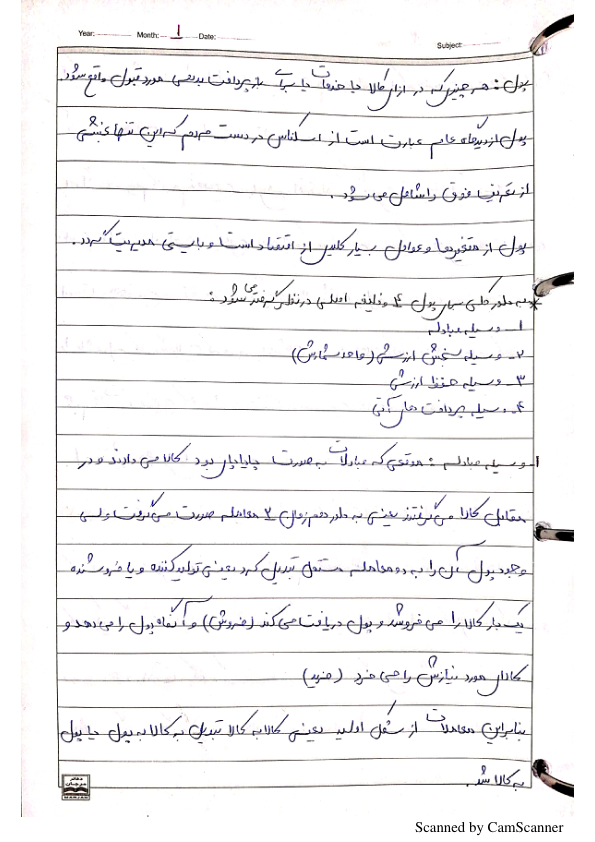 Year: Month: 1 Date:
Subject:
پول : هر چیزی که در ازای کالا یا خدمات یا برای باز پرداخت بدهی مورد قبول واقع شود
پول از دیدگاه عام عبارت است از اسکناس در دست مردم که این تنها بخشی
از تعریف فوق را شامل می شود .
پول از متغیرها و عوامل بسیار کلیدی از اقتصاد است و بایستی مدیریت گردد .
* به طور کلی برای پول ۴ وظیفه اصلی در نظر گرفته می شود :
۱- وسیله مبادله
۲- وسیله سنجش ارزش (واحد شمارش)
۳- وسیله حفظ ارزش
۴- وسیله پرداخت های آتی
۱- وسیله مبادله : موقعی که مبادلات به صورت پایاپای بود کالا می دادند و در
مقابل کالا می گرفتند یعنی به طور همزمان ۲ معامله صورت می گرفت ولی
وجود پول آن را به دو معامله مستقل تبدیل کرد یعنی تولید کننده و یا فروشنده
یک بار کالا را می فروشد و پول دریافت می کند (فروش) و آنگاه پول را می دهد و
کالای مورد نیازش را می خرد (خرید)
بنابراین معاملات از شکل اولیه یعنی کالا به کالا تبدیل به کالا به پول یا پول
به کالا شد .
دفاتر مرجان
MARJAN
Scanned by CamScanner